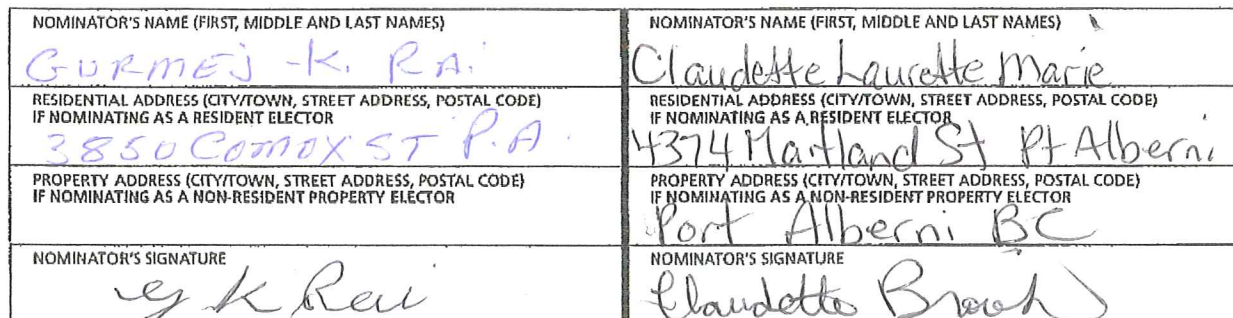 NOMINATOR'S NAME (FIRST, MIDDLE AND LAST NAMES)
GURMEJ -K. RAI.
RESIDENTIAL ADDRESS (CITY/TOWN, STREET ADDRESS, POSTAL CODE)
IF NOMINATING AS A RESIDENT ELECTOR
3850 COMOX ST P.A.
PROPERTY ADDRESS (CITY/TOWN, STREET ADDRESS, POSTAL CODE)
IF NOMINATING AS A NON-RESIDENT PROPERTY ELECTOR
NOMINATOR'S SIGNATURE
G K Rai
NOMINATOR'S NAME (FIRST, MIDDLE AND LAST NAMES)
Claudette Laurette Marie
RESIDENTIAL ADDRESS (CITY/TOWN, STREET ADDRESS, POSTAL CODE)
IF NOMINATING AS A RESIDENT ELECTOR
4374 Maitland St Pt Alberni
PROPERTY ADDRESS (CITY/TOWN, STREET ADDRESS, POSTAL CODE)
IF NOMINATING AS A NON-RESIDENT PROPERTY ELECTOR
Port Alberni BC
NOMINATOR'S SIGNATURE
Claudette